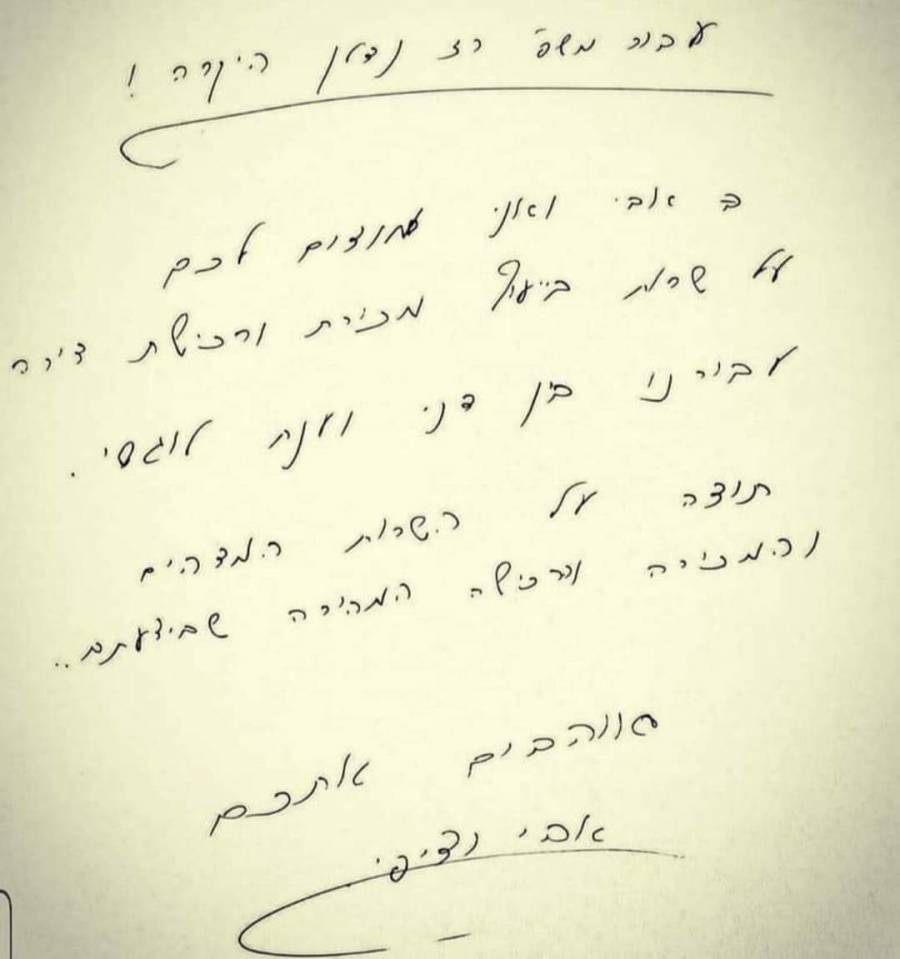 עבור משפ' רז נדלן היקרה !
אבי ואני מודים לכם
על שרות בייעוץ מכירת ורכישת דירה
עבורנו בין דני וענת לוגסי .
תודה על השרות המדהים
והמכירה והרכישה המהירה שביצעתם ..
אוהבים אתכם
אבי וציפי